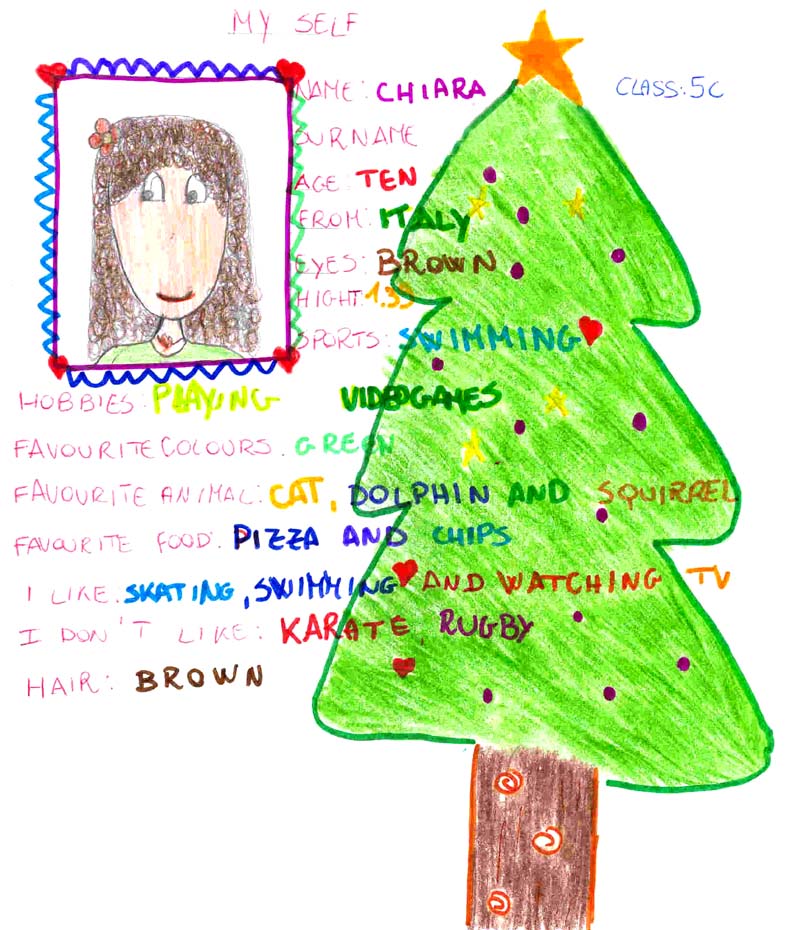 MY SELF
NAME: CHIARA
CLASS: 5C
SURNAME
AGE: TEN
FROM: ITALY
EYES: BROWN
HIGHT: 1.33
SPORTS: SWIMMING
HOBBIES: PLAYING VIDEOGAMES
FAVOURITE COLOURS. GREEN
FAVOURITE ANIMAL: CAT, DOLPHIN AND SQUIRREL
FAVOURITE FOOD: PIZZA AND CHIPS
I LIKE: SKATING, SWIMMING AND WATCHING TV
I DON'T LIKE: KARATE, RUGBY
HAIR: BROWN